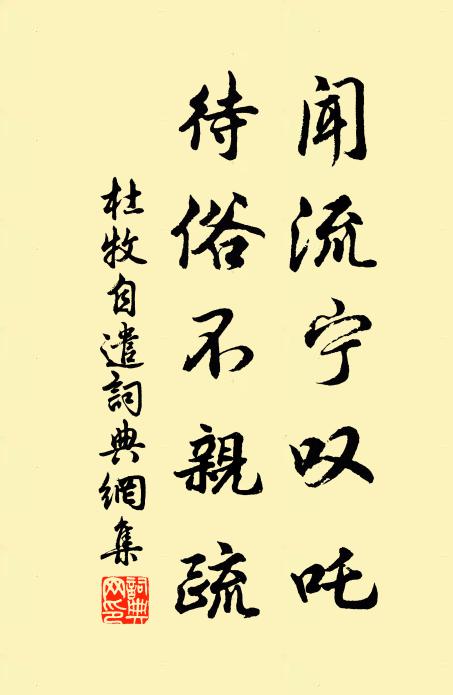 闻流宁叹吒
待俗不親疏
杜牧自遣詞典網集
詞典網印